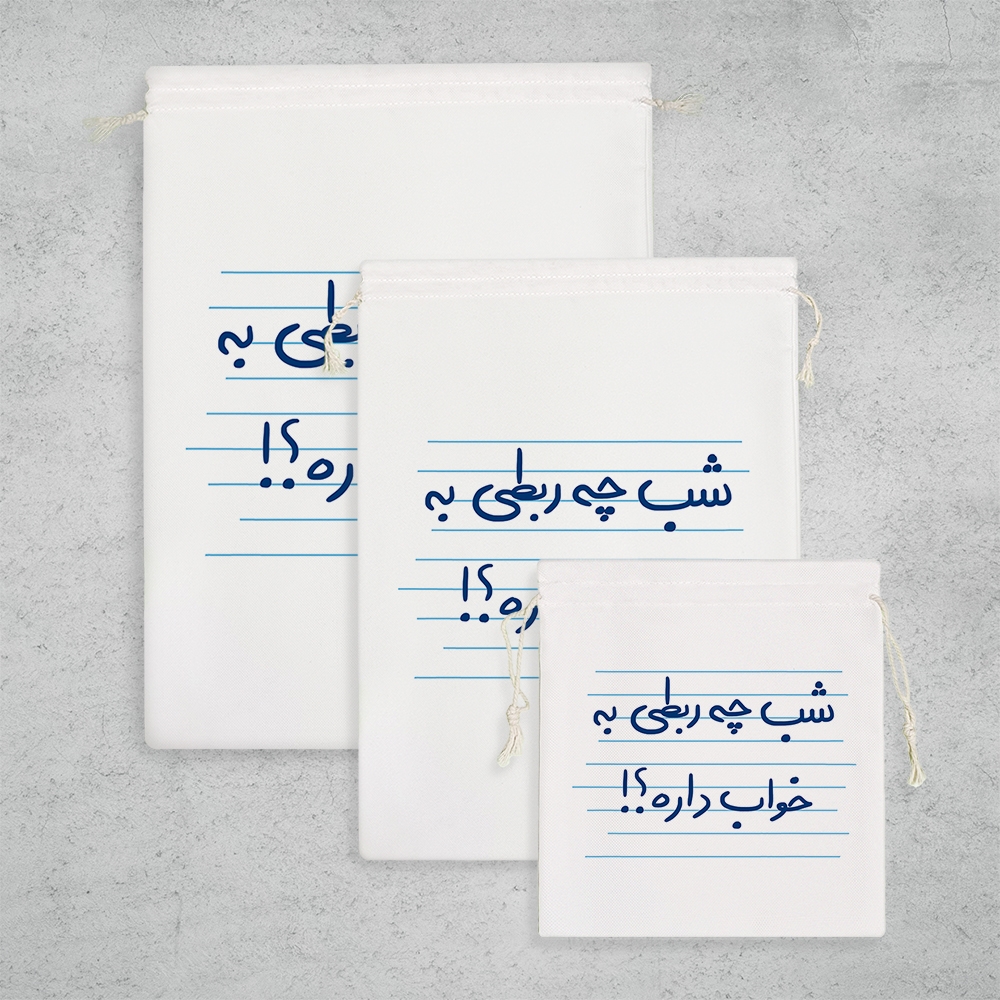 ربطی به
ره؟!
شب چه ربطی به
ره؟!
شب چه ربطی به
خواب داره؟!